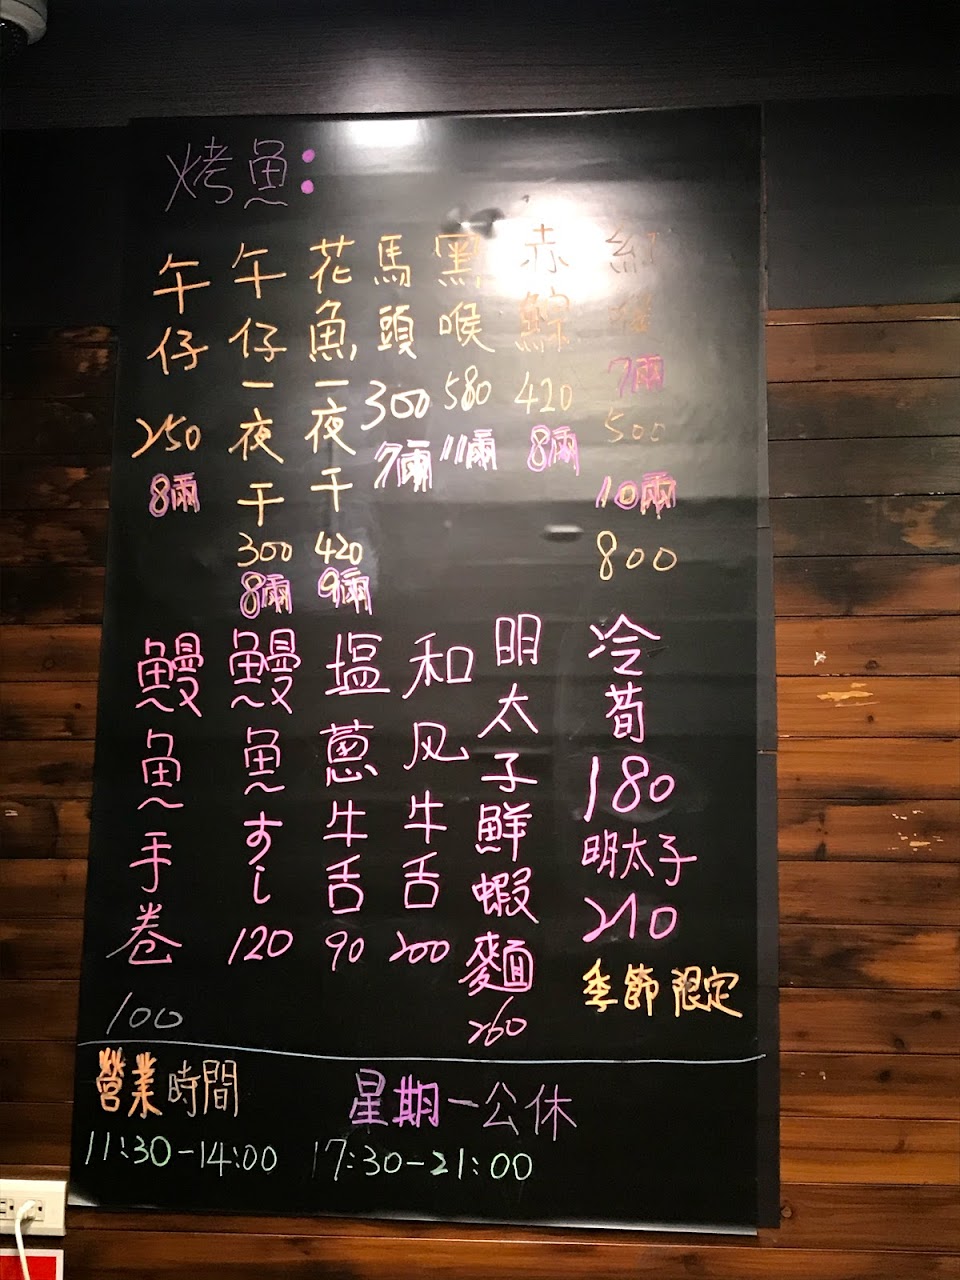 烤魚:
午仔 250 8兩
午仔一夜干 300 8兩
花魚一夜干 420 9兩
馬頭 300 7兩
黑喉 580 11兩
赤鯮 420 8兩
紅喉 7兩 500 10兩 800
鰻魚手卷 100
鰻魚すし 120
塩蔥牛舌 90
和风牛舌 200
明太子鮮蝦麵 260
冷荀 180
明太子 210
季節限定
營業時間
星期一公休
11:30-14:00 17:30-21:00